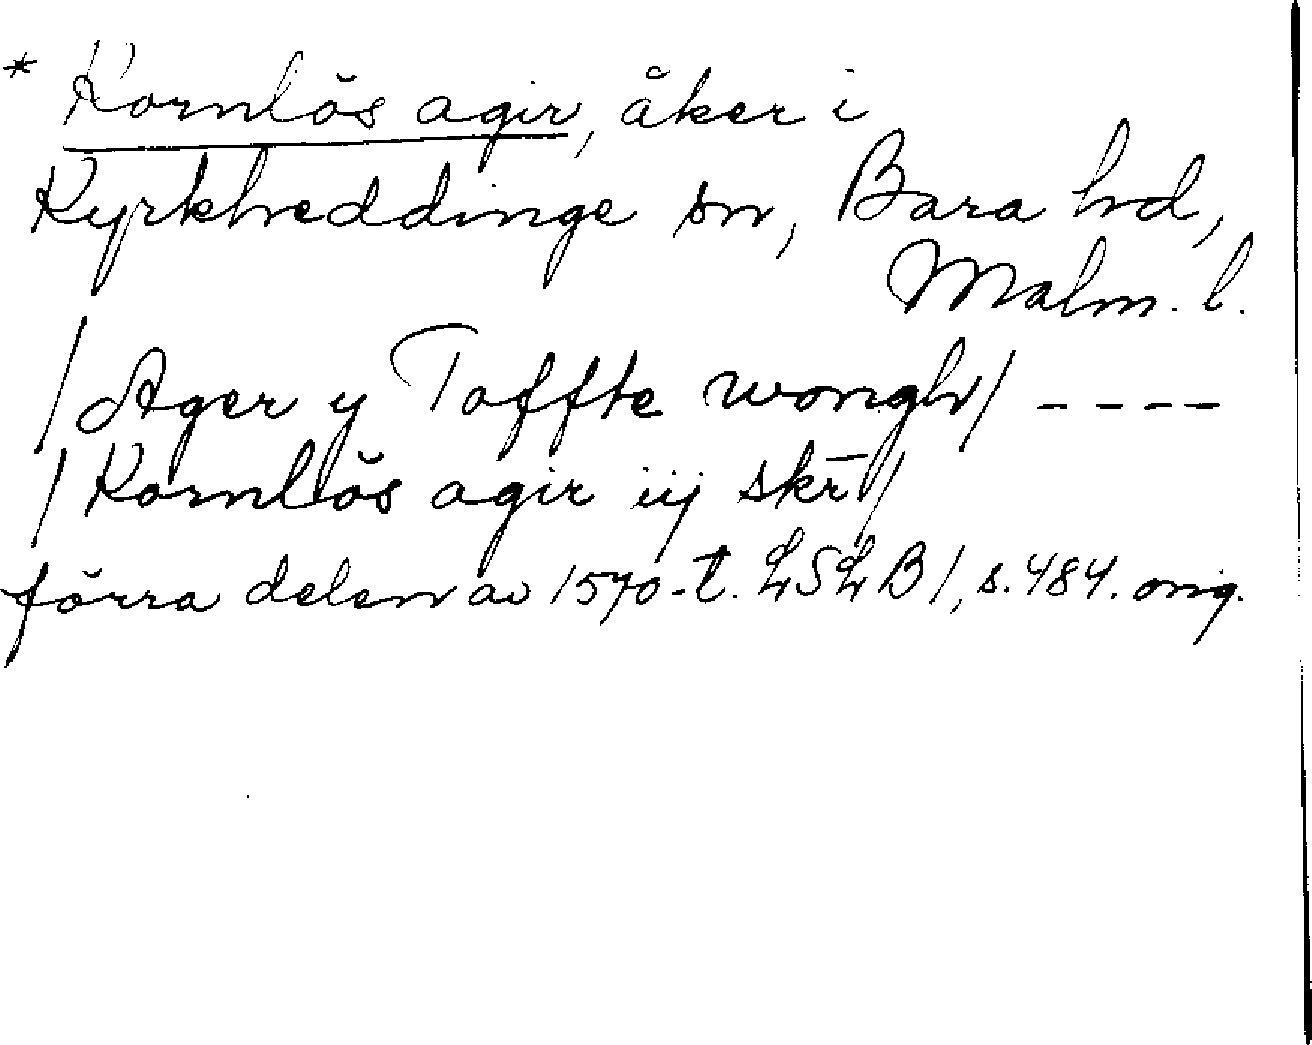 * Kornlös agir, åker i
Kyrkheddinge sn, Bara hd,
Malm. l.
/Ager y Toffte wongh/ ----
/Kornlös agir iij skr̄/
förra delen av 1570-t. LSLB 1, s. 484. orig.